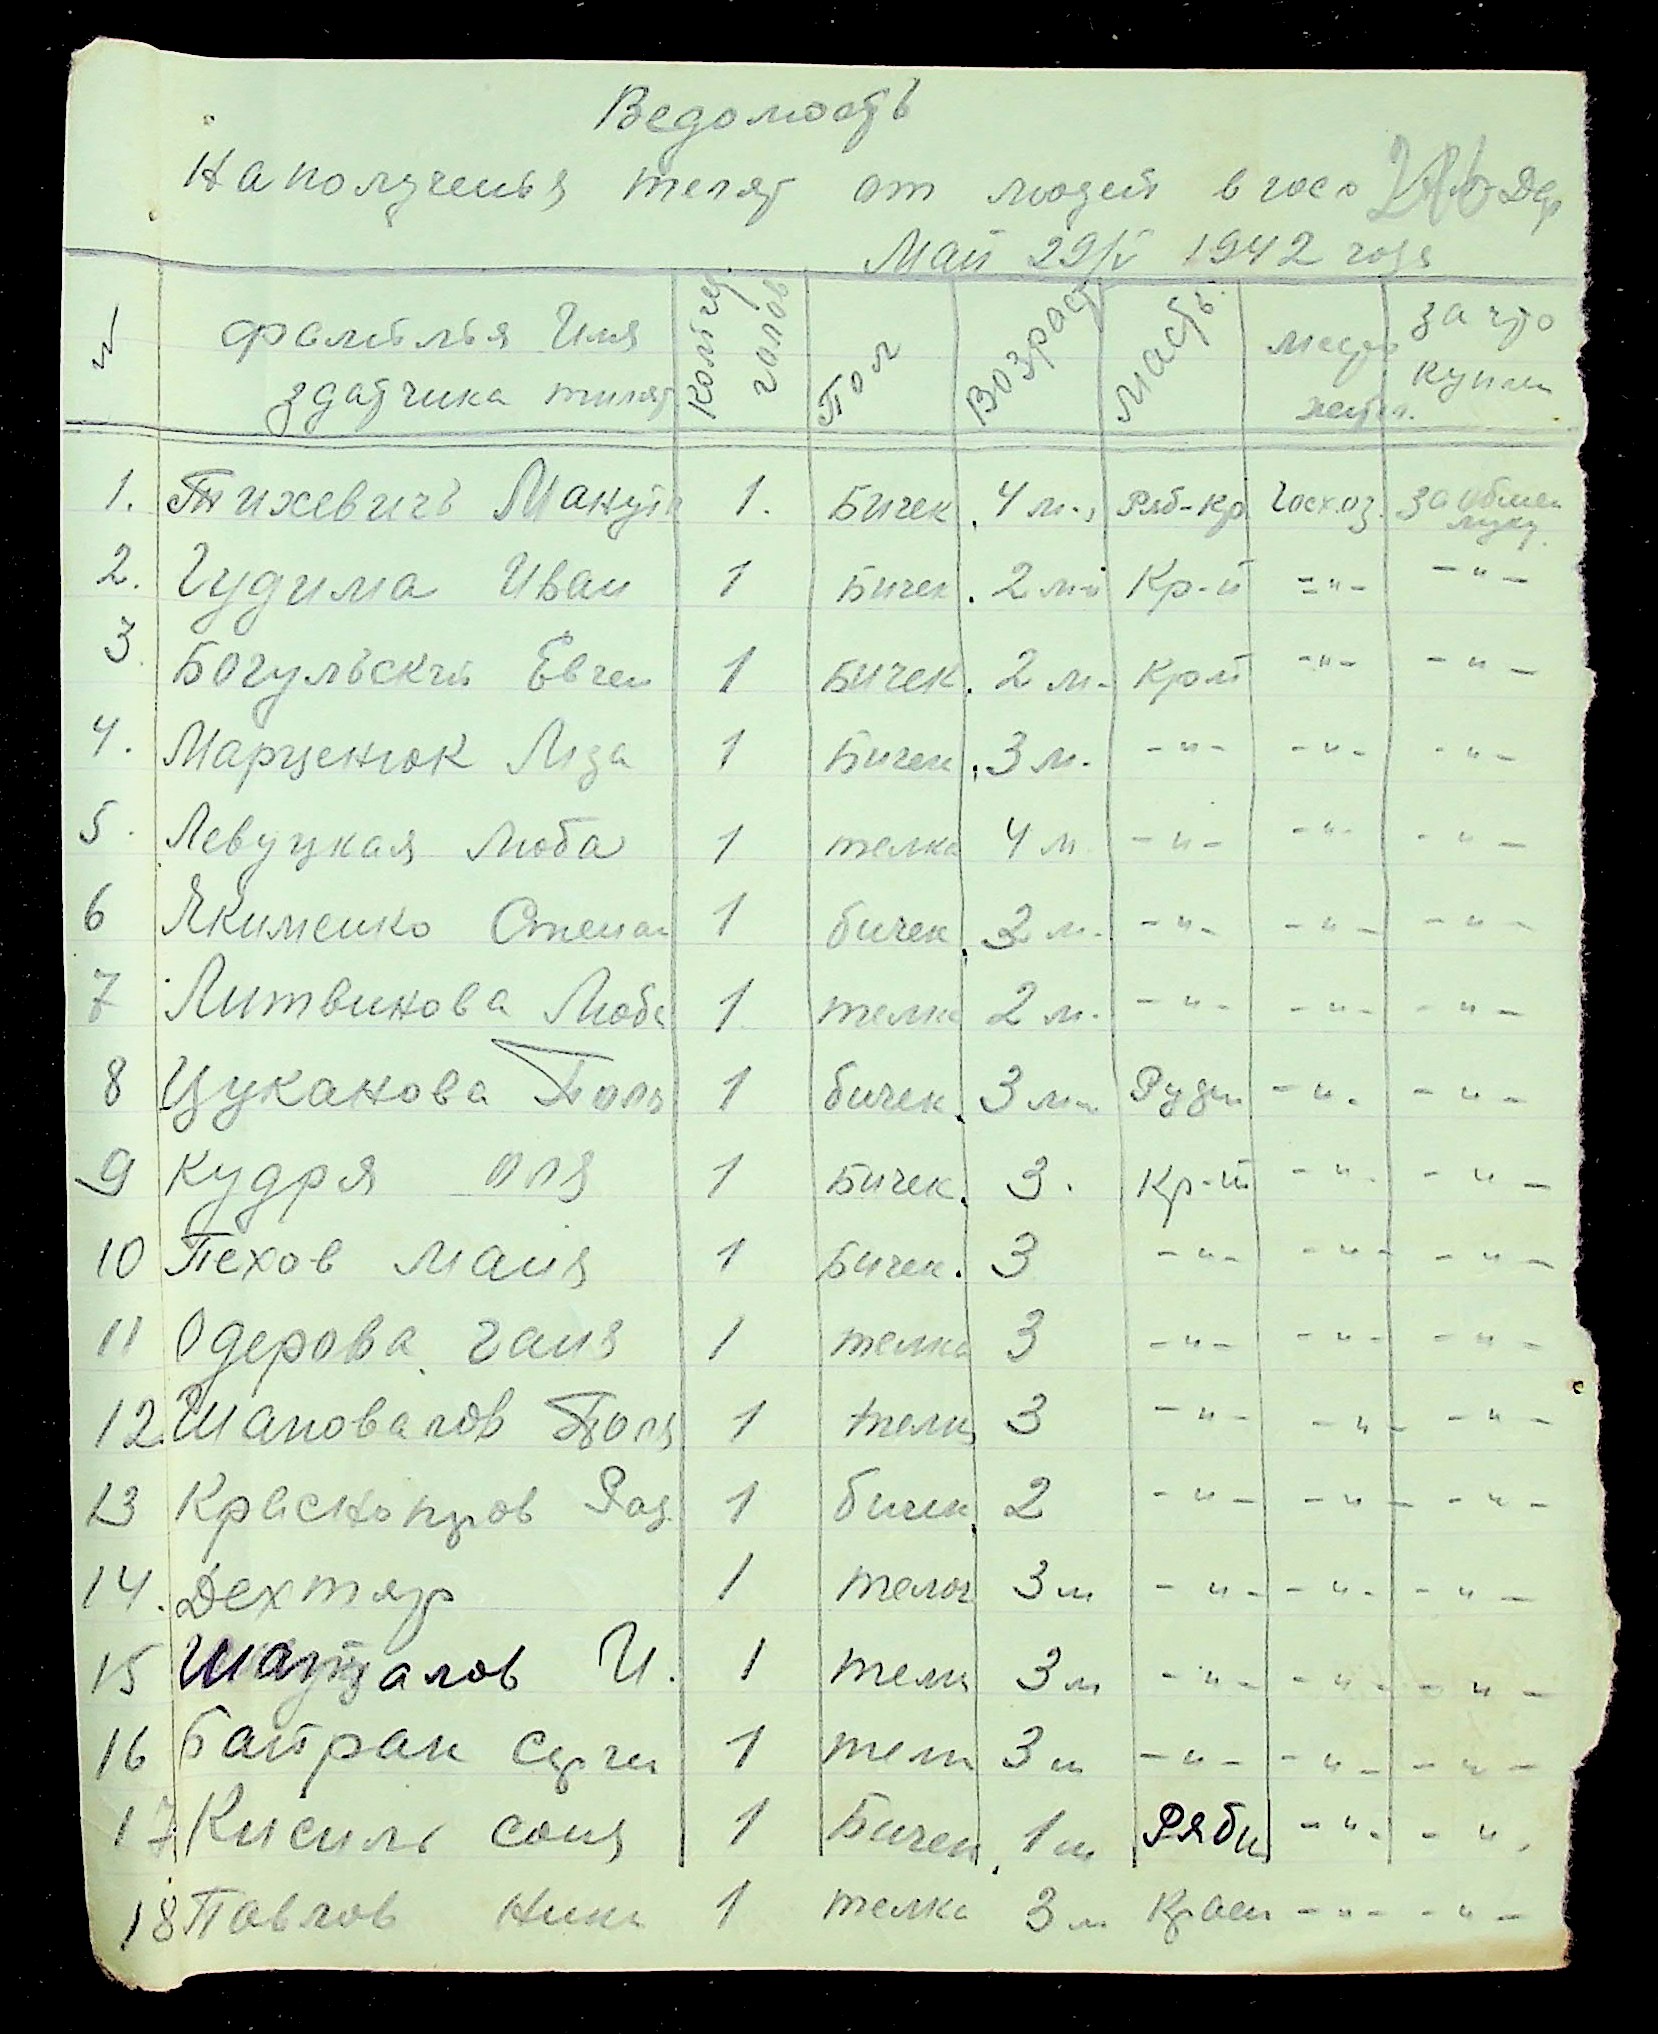 Ведомость
На полученья телят от людей в госо
Май 29/V 1942 года
№ фамилья Имя здатчика тилят Количе голов Пол Возраст Масть место жител. за что купили
1. Тихевичь Мануи 1. Бичек. 4 м., Ряб-кр Госхоз. За обмен муку.
2. Гудима Иван 1 Бичек. 2 м-й Кр-й -"- -"-
3. Богульский Евген 1 Бичек. 2 м. Кр-й -"- -"-
4. Марценюк Лида 1 Бичек. 3 м. -"- -"- -"-
5. Левуцкая Люба 1 телка 4 м -"- -"- -"-
6 Якименко Степан 1 бичек. 3 м. -"- -"- -"-
7 Литвинова Люба 1 телка 2 м. -"- -"- -"-
8 Цуканова Поля 1 бичек. 3 м. Руди -"- -"-
9 Кудря Оля 1 Бичек. 3. Кр-й -"- -"-
10 Пехов Маня 1 Бичек. 3 -"- -"- -"-
11 Одерова Галя 1 телка 3 -"- -"- -"-
12. Шаповалов Поля 1 телка 3 -"- -"- -"-
13 1 бичек 2 -"- -"- -"-
14. Дехтяр 1 телок 3 м -"- -"- -"-
15 И. 1 телк 3 м -"- -"- -"-
16 Байрак Серги 1 телк 3 м -"- -"- -"-
17 Кисиль Соня 1 Бичек. 1 м Ряби -"- -"-
18 Павлов Нина 1 телка 3 м Красн -"- -"-